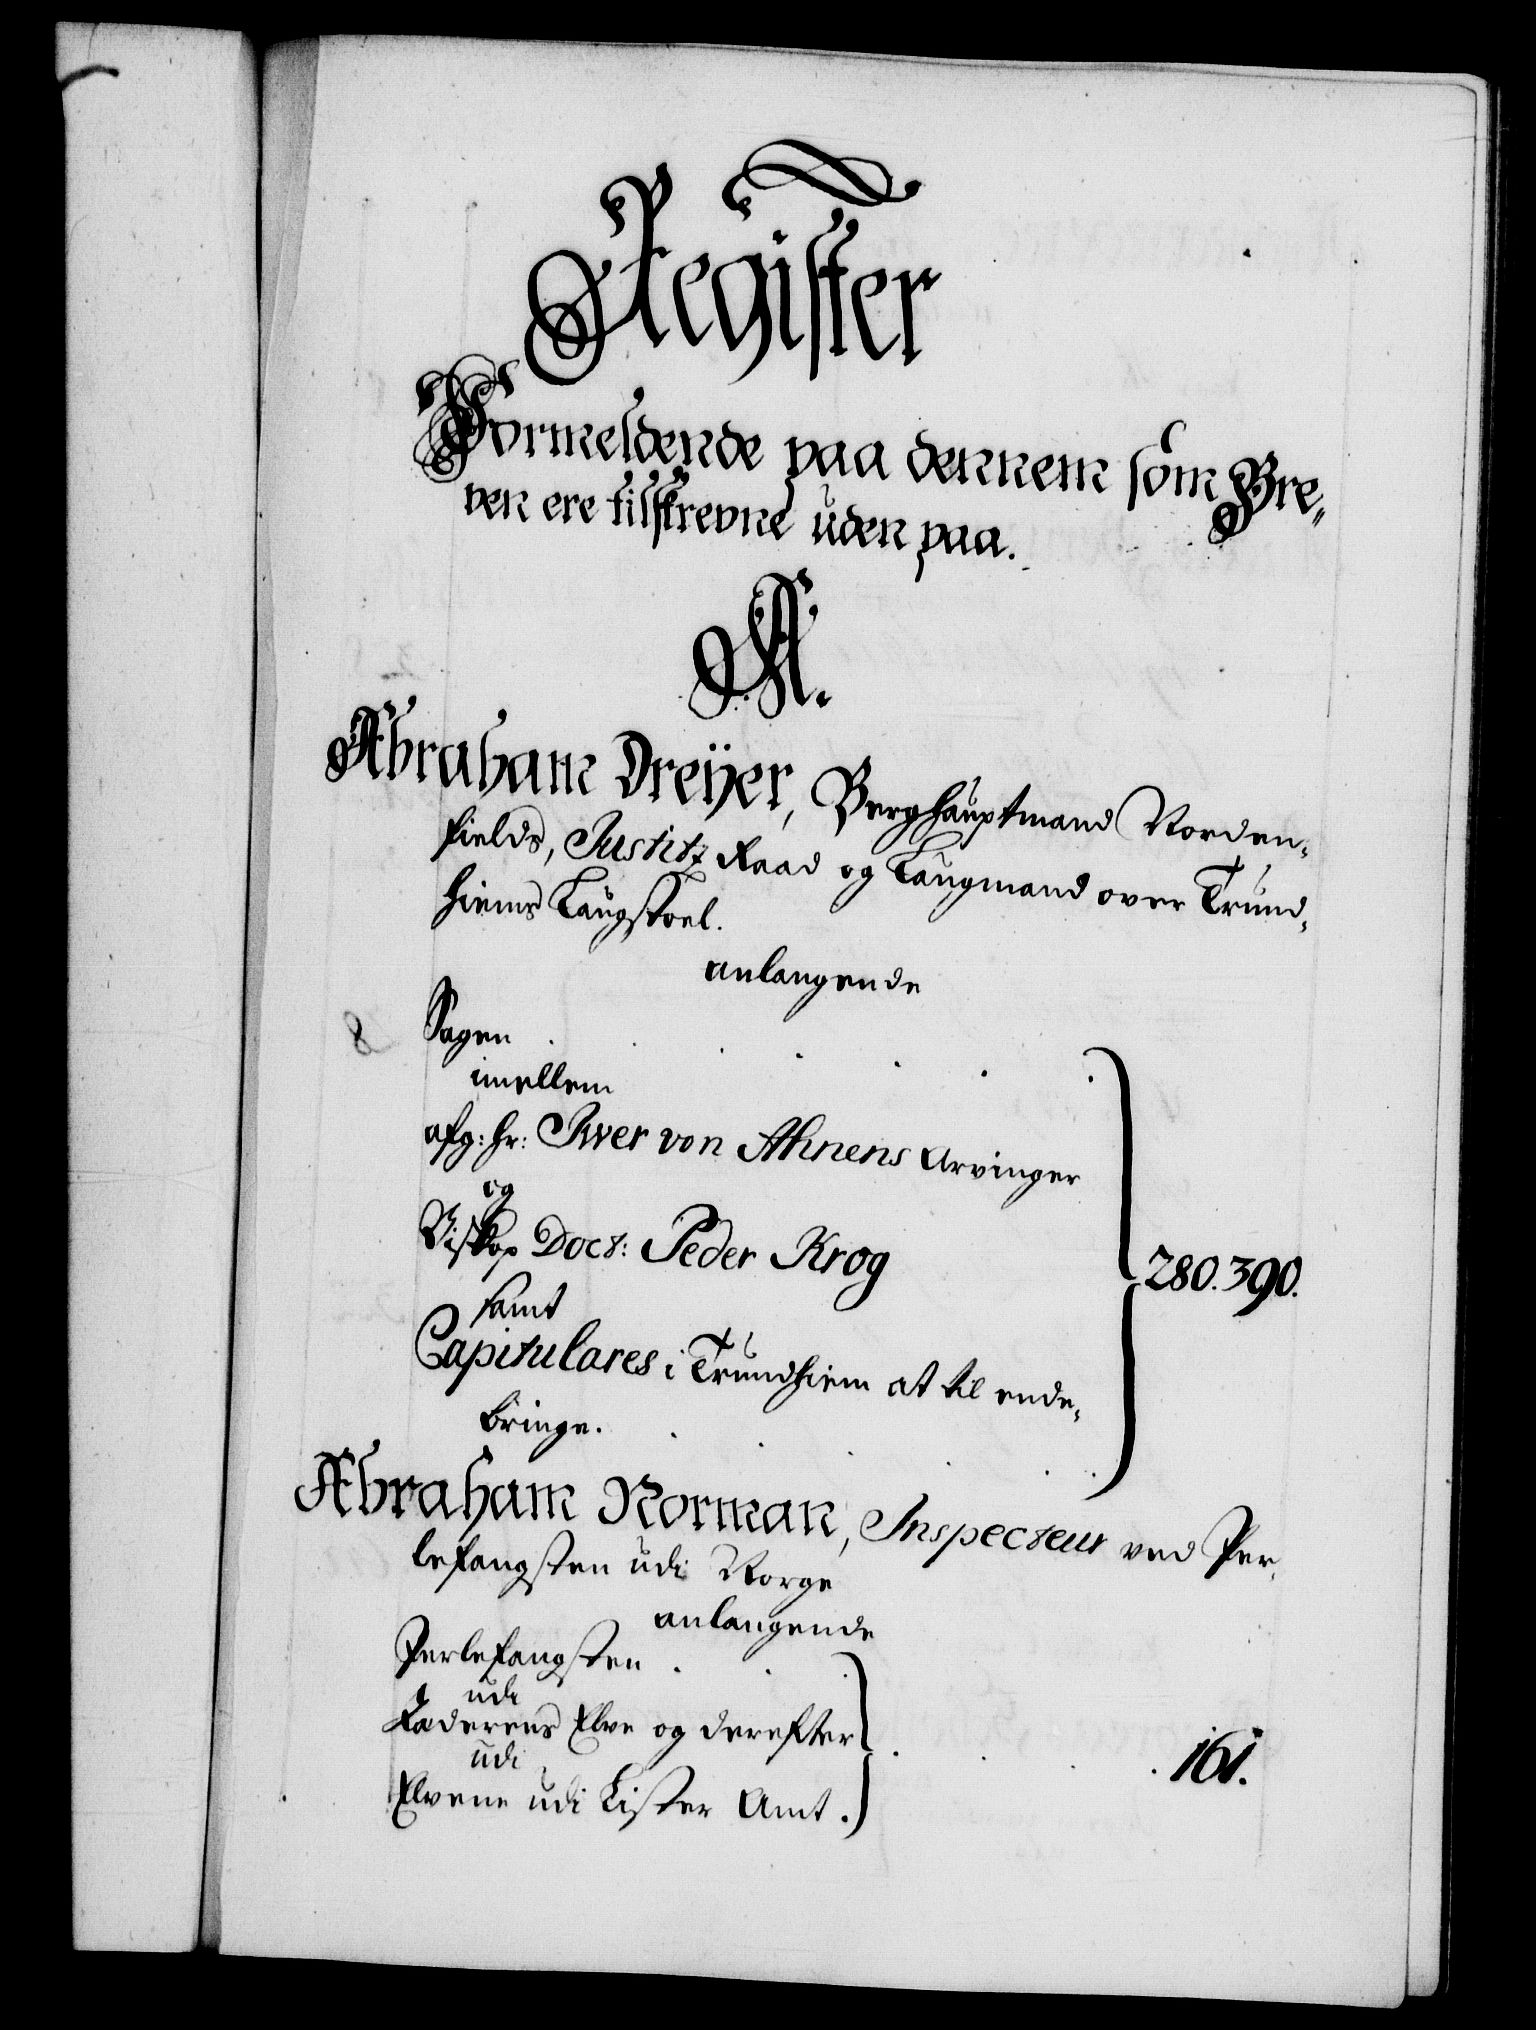 Register
Formeldende paa dennem som Bre-
ven ere tilskrevne uden paa.
A.
Abraham Dreÿer, Berghauptmand Norden-
fields, Justitz Raad og Laugmand over Trund-
hiems Laugstoel.
anlangende
8 Sagen
imellem
afg: Hr: Iver von Ahnens Arvinger
og
Biskop Doct: Peder Krog
samt
280. 390.
Capitulares i Trundhiem at til ende-
bringe.
Abraham Norman, Inspecteur ved Per-
lefangsten udi Norge
anlangende
Perlefangsten
udi
Elve og derefter
udi
161.
Elvene udi Lister Amt.